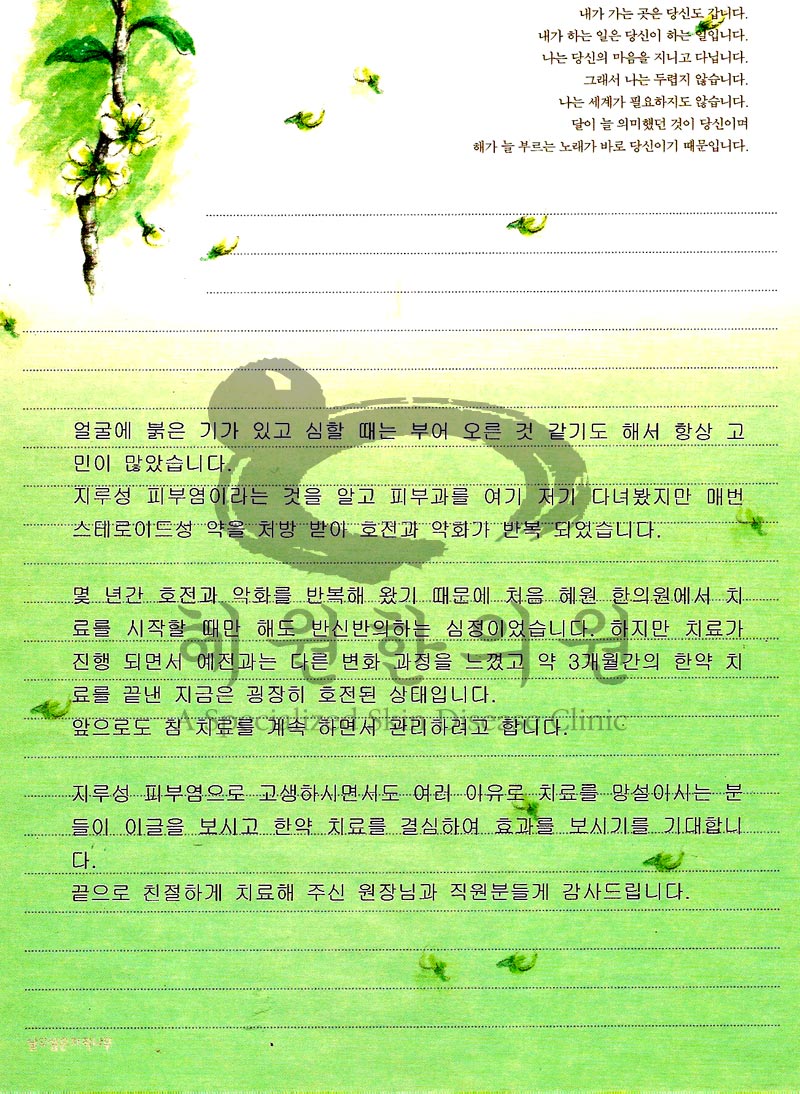 내가 가는 곳은 당신도 갑니다.
내가 하는 일은 당신이 하는 일입니다.
나는 당신의 마음을 지니고 다닙니다.
그래서 나는 두렵지 않습니다.
나는 세계가 필요하지도 않습니다.
달이 늘 의미했던 것이 당신이며
해가 늘 부르는 노래가 바로 당신이기 때문입니다.
얼굴에 붉은 기가 있고 심할 때는 부어 오른 것 같기도 해서 항상 고
민이 많았습니다.
지루성 피부염이라는 것을 알고 피부과를 여기 저기 다녀봤지만 매번
스테로이드성 약을 처방 받아 호전과 악화가 반복 되었습니다.
몇 년간 호전과 악화를 반복해 왔기 때문에 처음 혜원 한의원에서 치
료를 시작할 때만 해도 반신반의하는 심정이었습니다. 하지만 치료가
진행 되면서 예전과는 다른 변화 과정을 느꼈고 약 3개월간의 한약 치
료를 끝낸 지금은 굉장히 호전된 상태입니다.
앞으로도 침 치료를 계속 하면서 관리하려고 합니다.
지루성 피부염으로 고생하시면서도 여러 이유로 치료를 망설이시는 분
들이 이글을 보시고 한약 치료를 결심하여 효과를 보시기를 기대합니
다.
끝으로 친절하게 치료해 주신 원장님과 직원분들게 감사드립니다.
혜원한의원
A Specialized Skin Disease Clinic